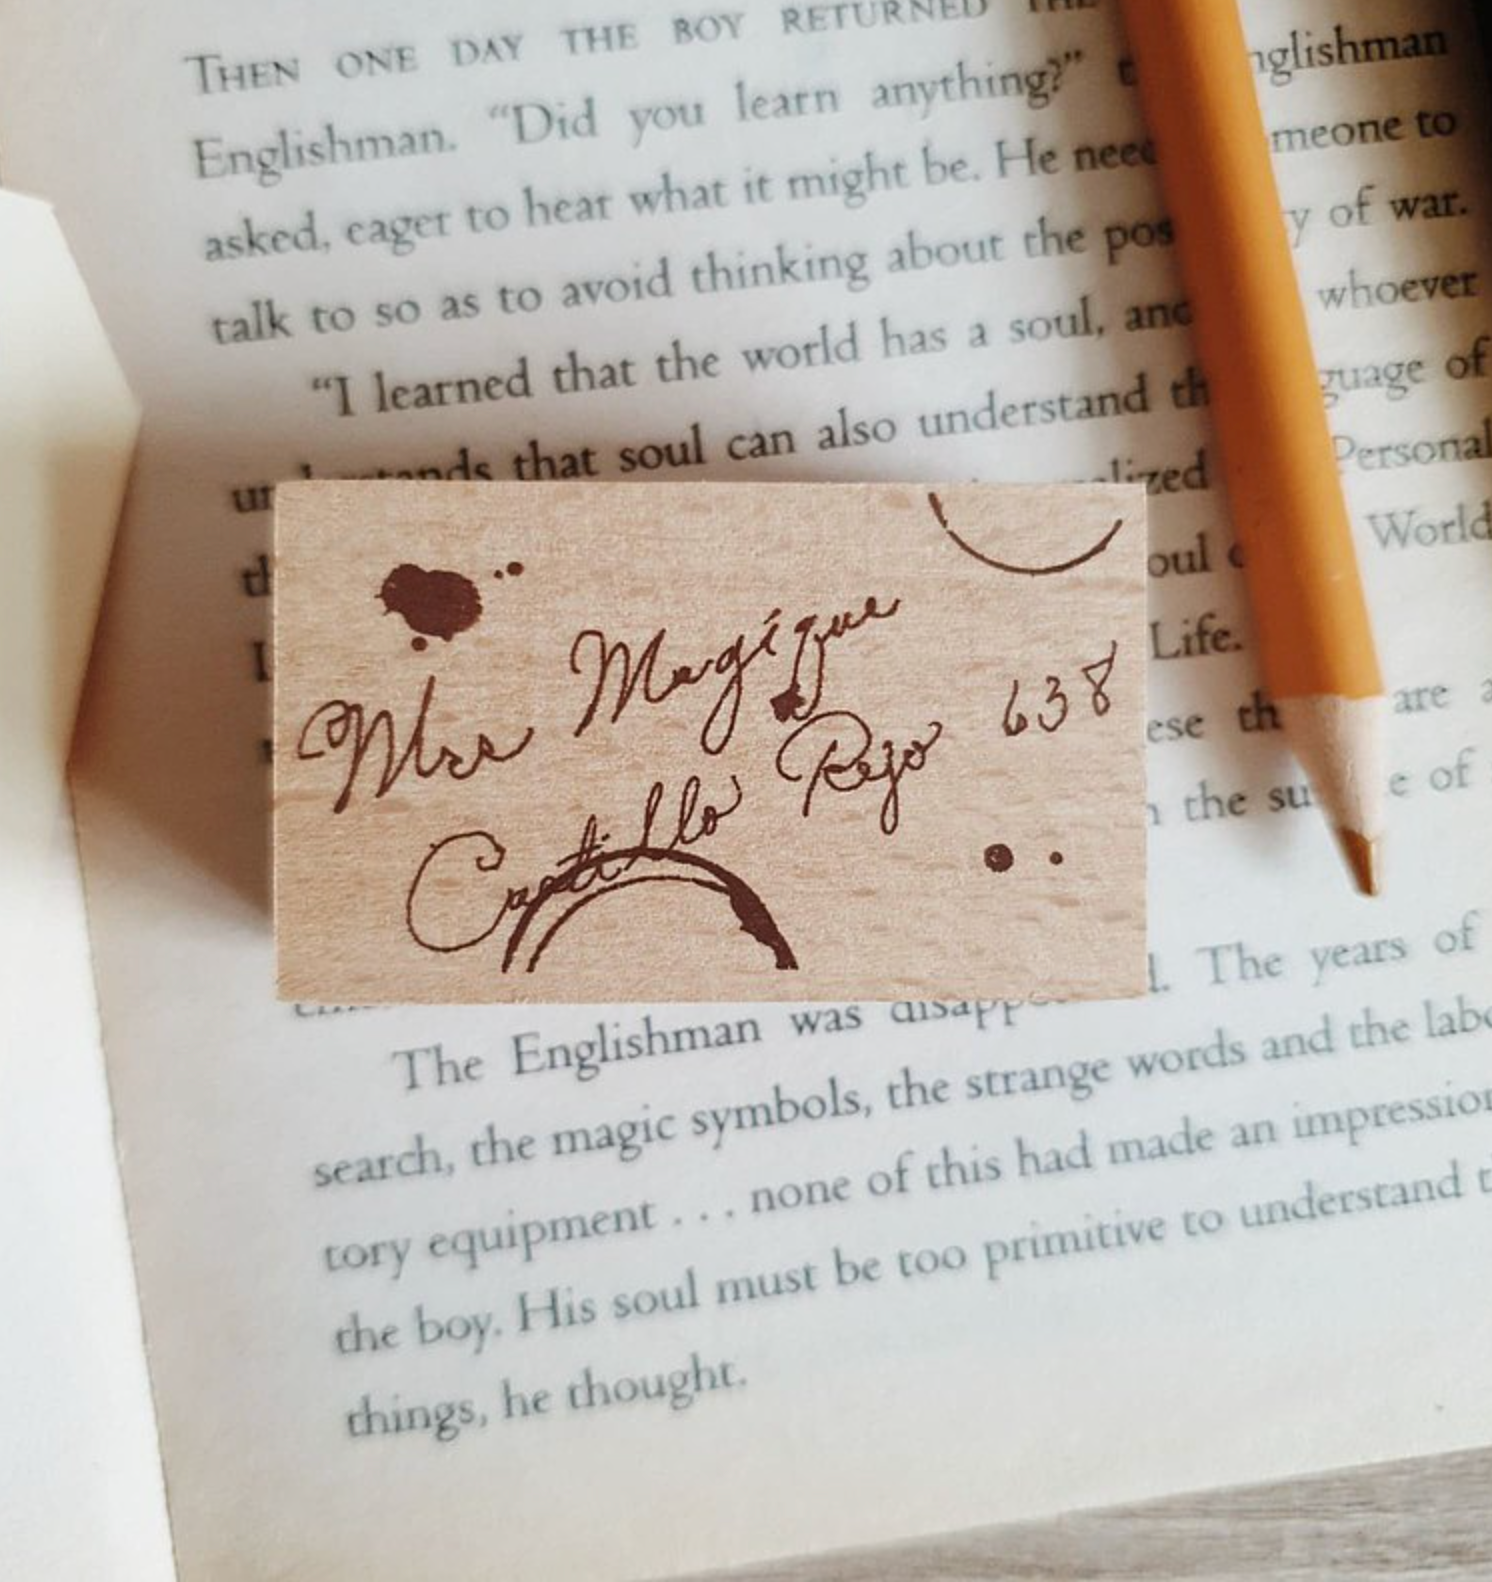 THEN ONE DAY THE BOY RETURNED THE
Englishman. “Did you learn anything?” nglishman
asked, eager to hear what it might be. He need meone to
talk to so as to avoid thinking about the pos y of war.
“I learned that the world has a soul, and whoever
understands that soul can also understand th guage of
alized Personal
oul World
Life.
Mrs Magique
Castillo Rejo 638
ese th are a
n the su e of
The years of
The Englishman was disappo
search, the magic symbols, the strange words and the labo
tory equipment . . . none of this had made an impression
the boy. His soul must be too primitive to understand t
things, he thought.